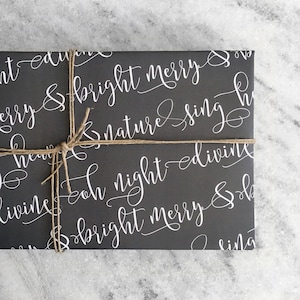 divine
bright merry &
merry & bright merry &
heaven & nature sing he
divine oh night divine
& bright merry & b
sing